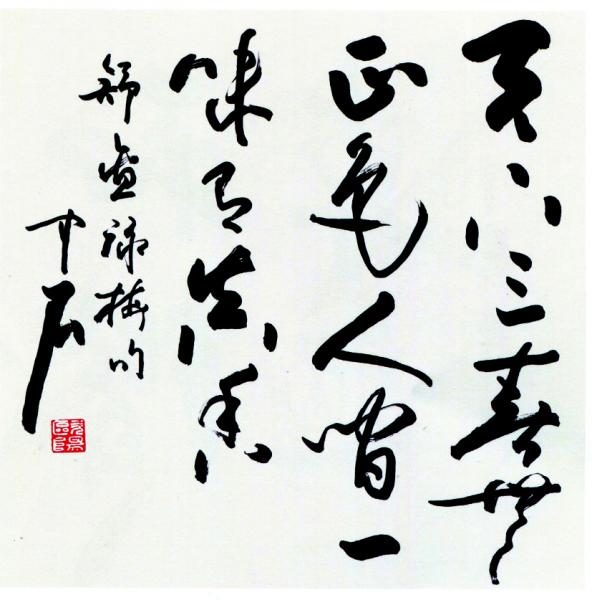 天下三春無
正色人間一
味有真香
舒亶詠梅句
中石